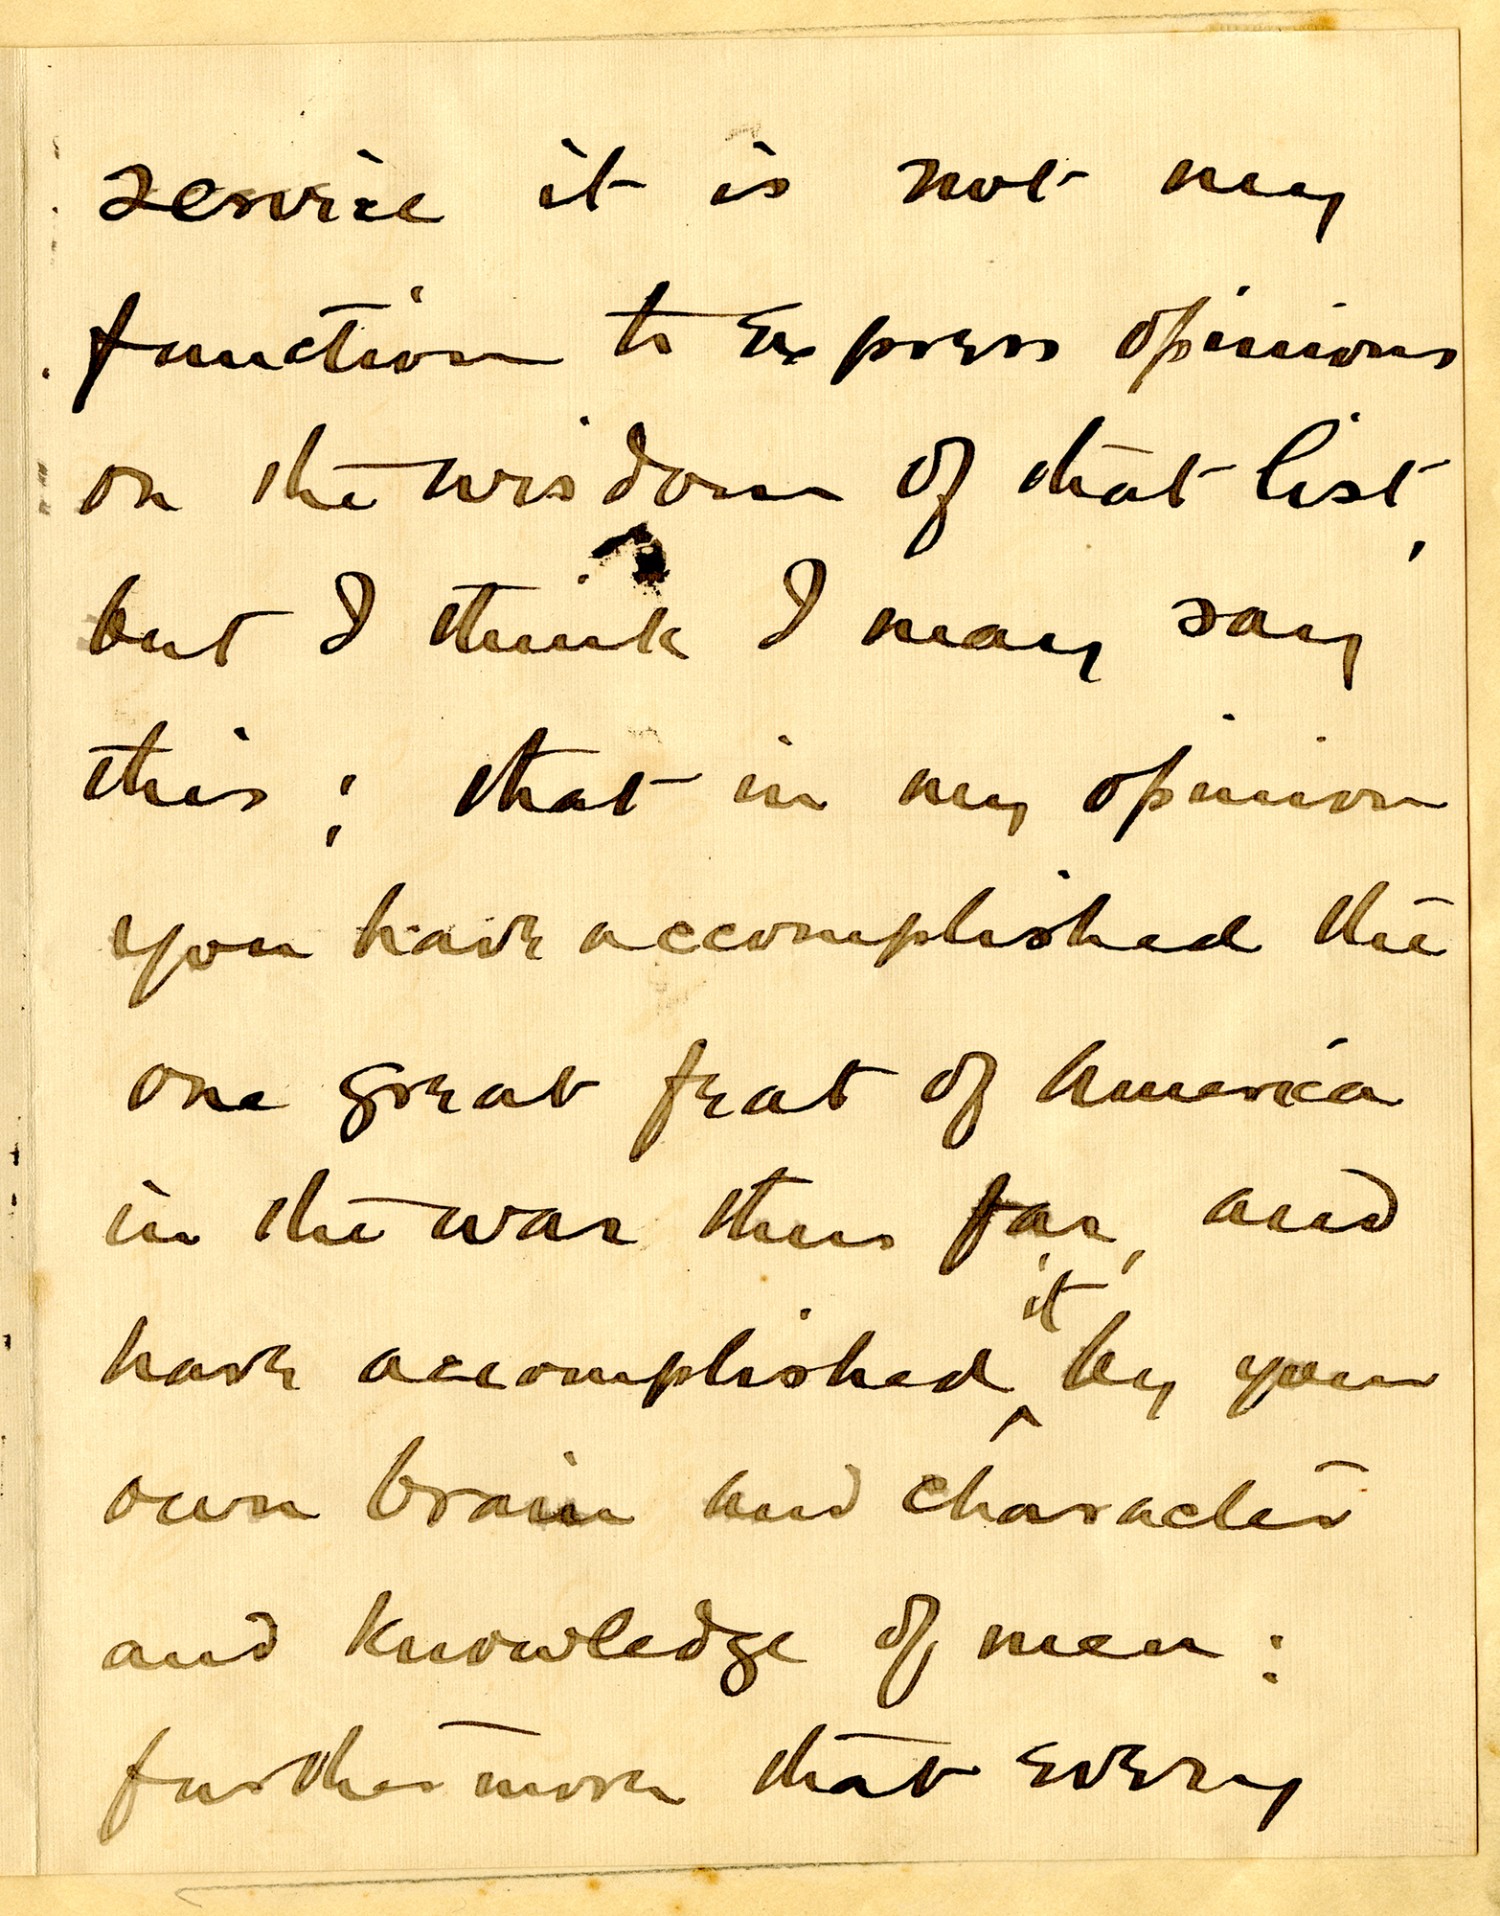 service it is not my
function to express opinions
on the wisdom of that list,
but I think I may say
this; that in my opinion
you have accomplished the
one great feat of America
in the war thus far, and
have accomplished it by your
own brain and character
and knowledge of men:
furthermore that every